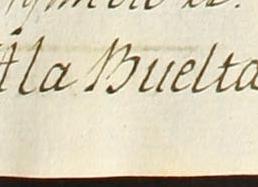 Ala Buelta